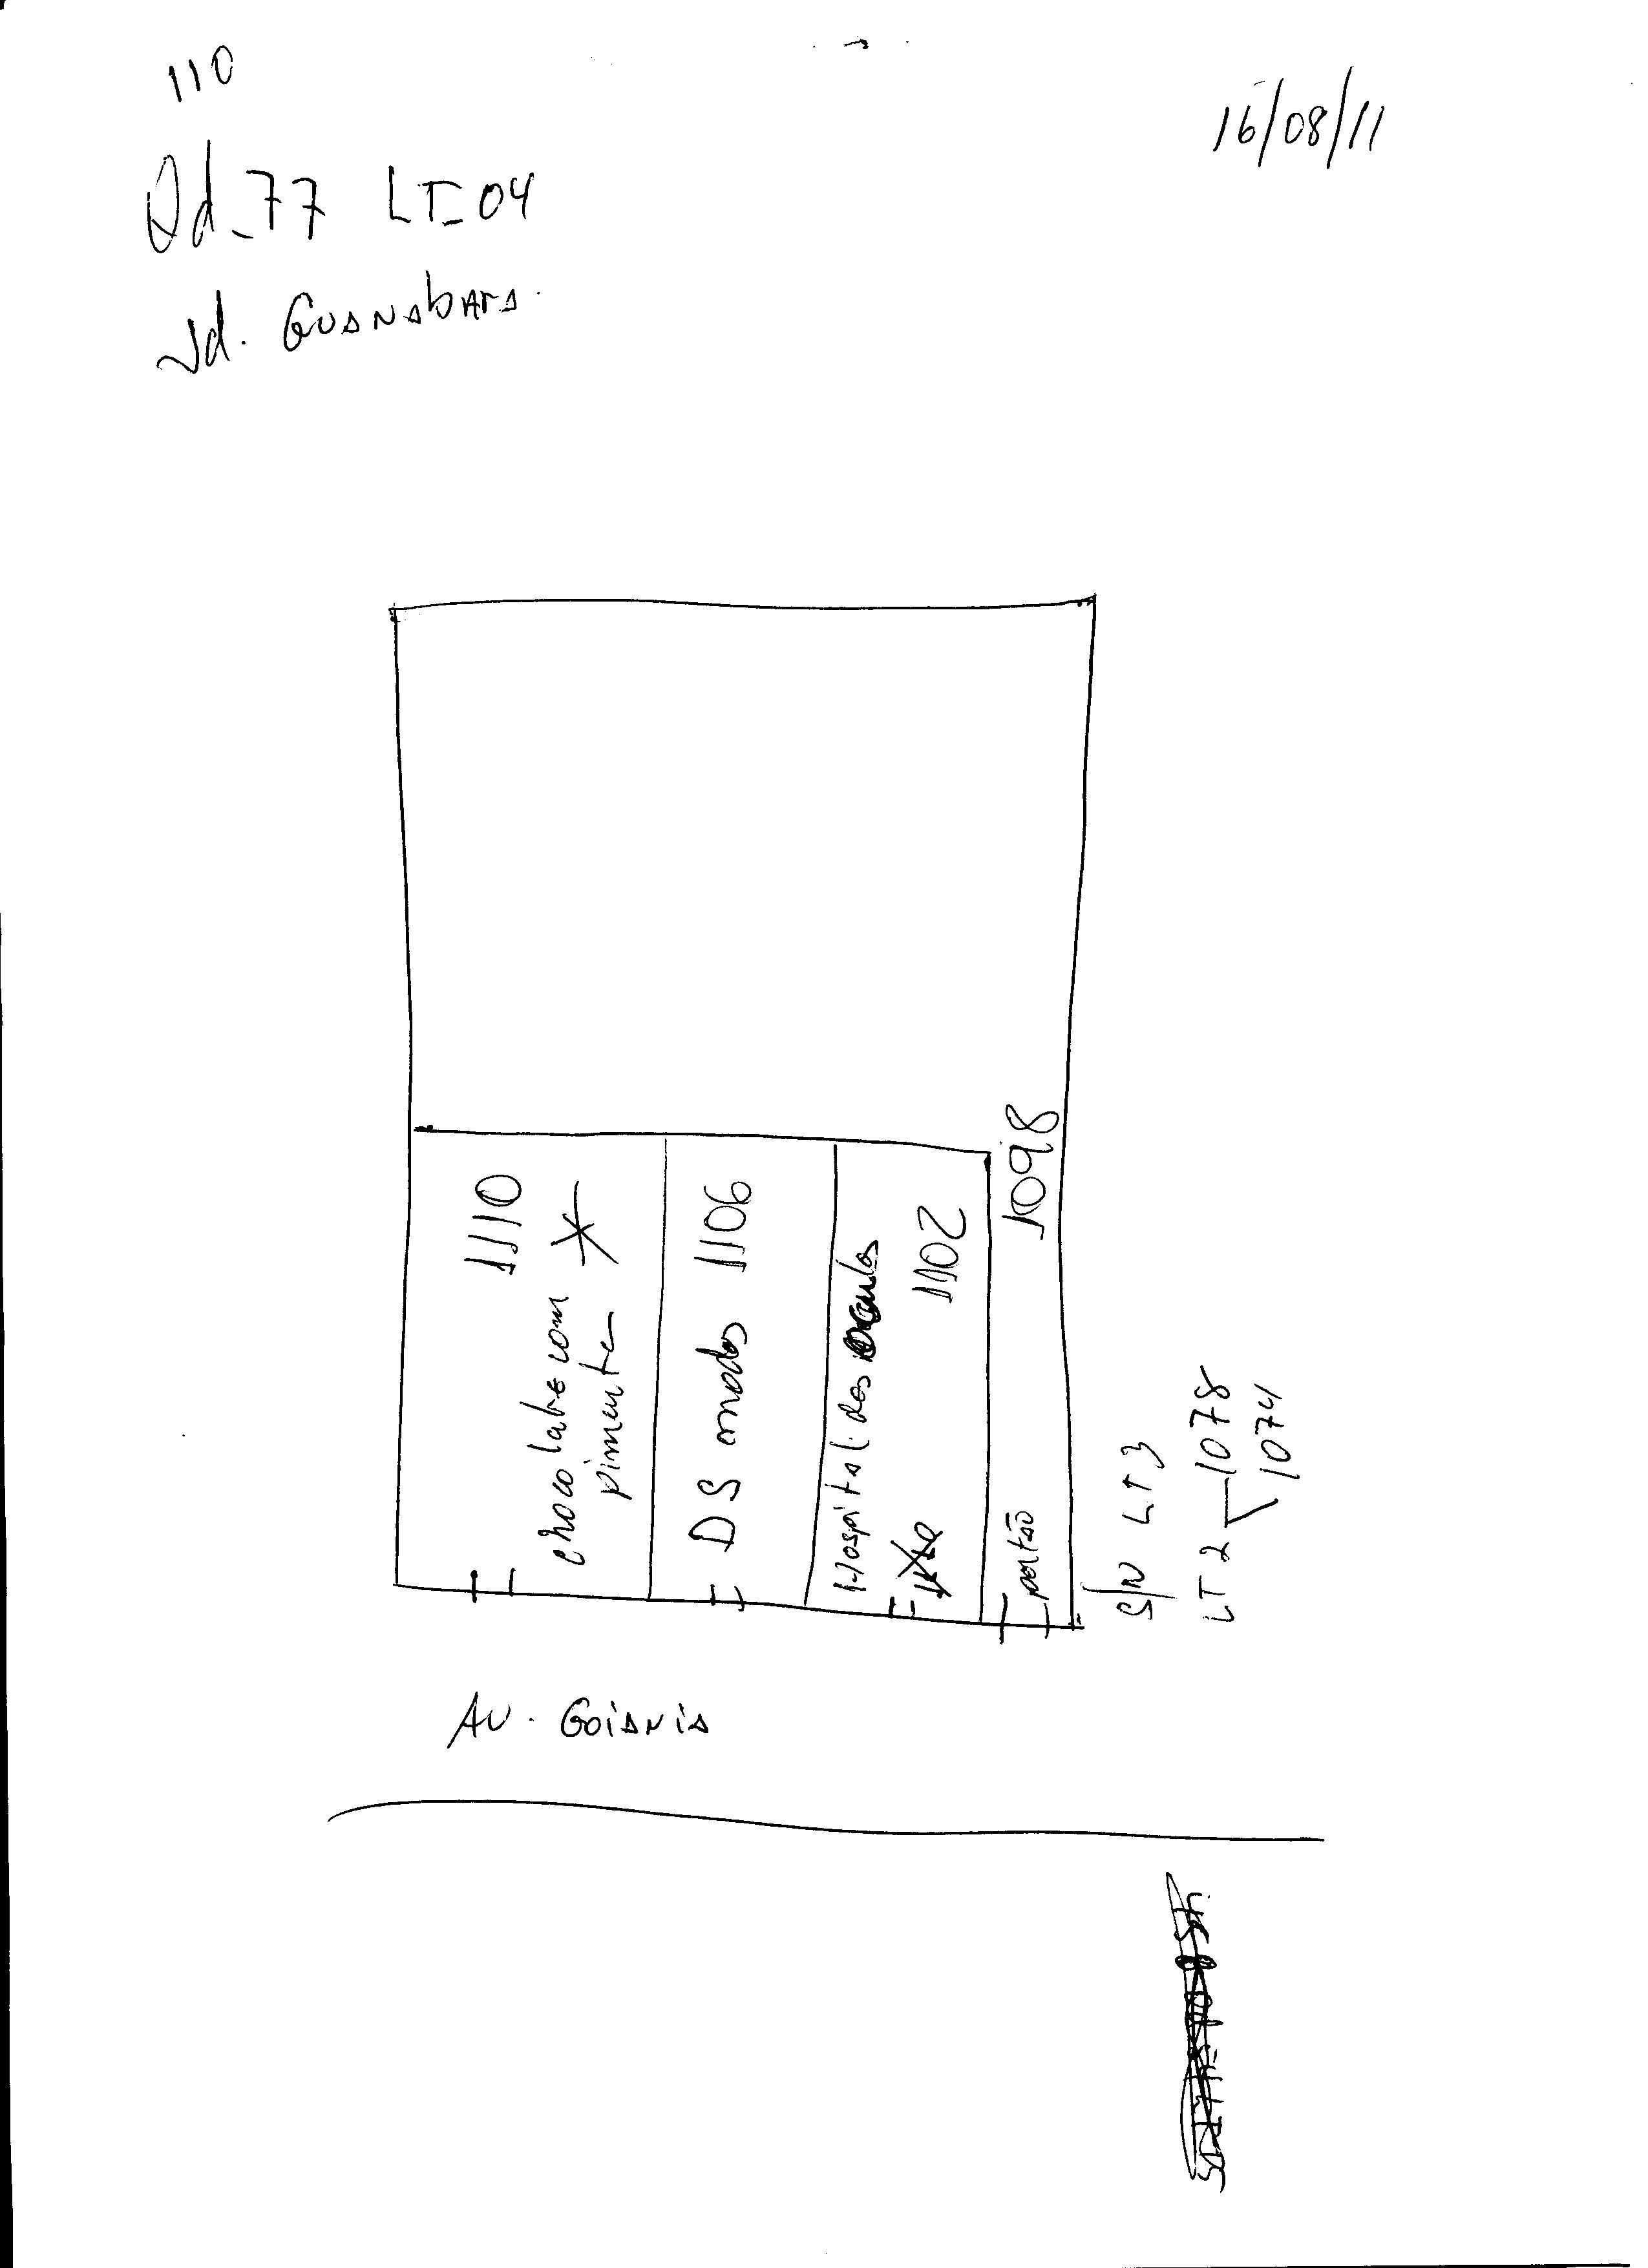 110
16/08/11
Qd_77 LT_04
Jd. GUANABARA.
1110
chocolate com
pimenta
DS modas 1106
Hospital dos oculos
1102
portão 1098
S/N LT 3
LT 2 1078
1074
AV. GOIANIA